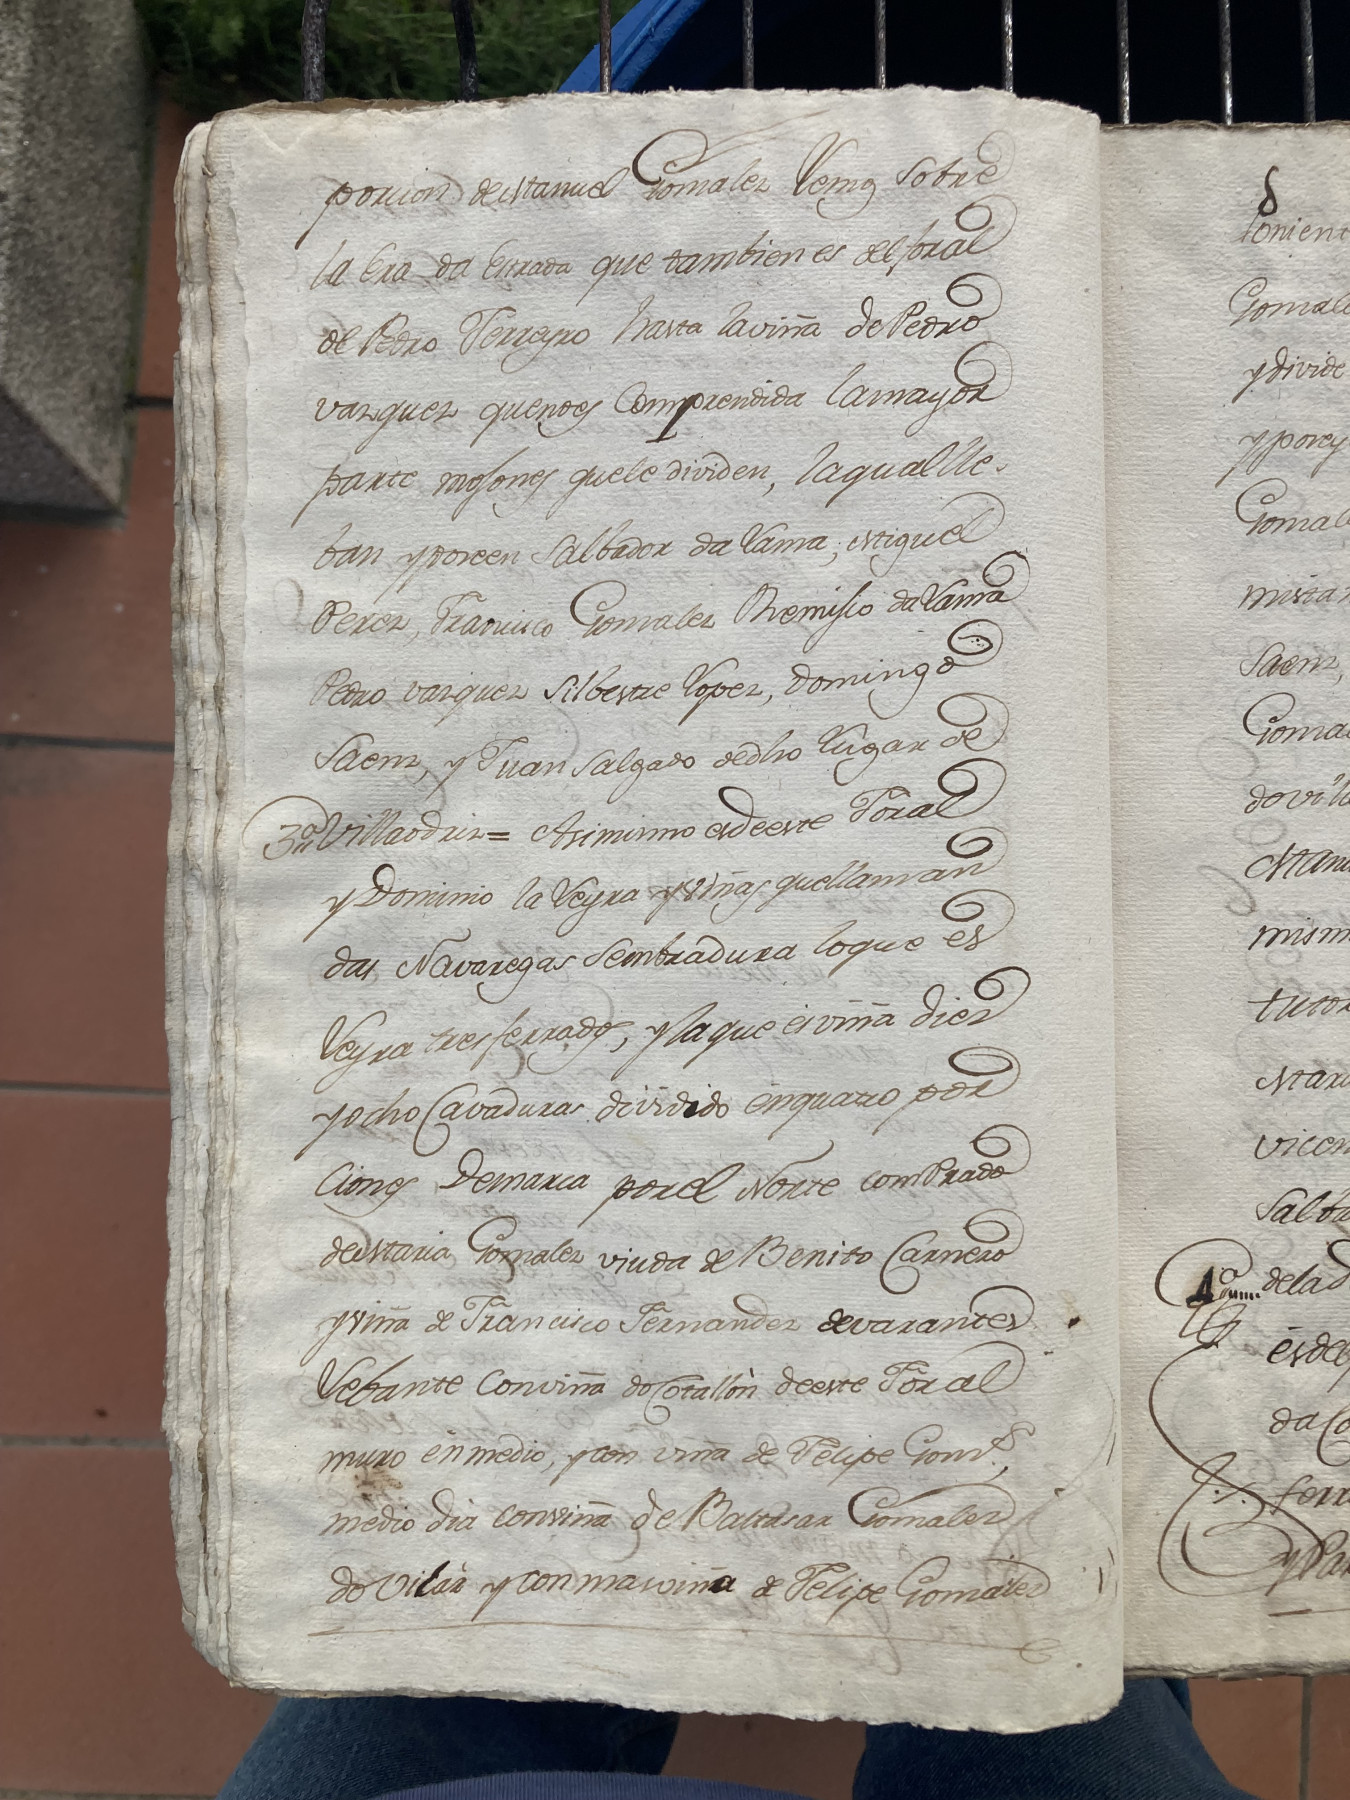 porcion de Manuel Gomalez Veing sobre
la Era da Estrada que tambien es del foral
de Pedro Ferreyro hasta laviña de Pedro
vazquez quenoes Comprendida lamayor
parte mosones quele dividen, laqual lle-
ban yposeen Salbador da Vama, Miguel
Perez, Francisco Gonzalez Remisio da Vama
Pedro vazquez Silbestre lopez, Domingo
Saenz, y Juan Salgado dedho lugar de
3ª Villaodriz = Asimismo esdeeste Foral
y Dominio la Veyra yviñas quellaman
das Navaregas Sembradura loque es
Veyra tres ferrados, y laque es viña diez
yocho Cavaduras dividido enquatro por
ciones Demarca porel Norte comPrado
deMaria Gomalez viuda de Benito Carnero
yviña de Francisco Fernandez devarantes
Vebante conviña doCotallòn deeste Foral
muro enmedio, ycon viña de Felipe Gonz.,
medio dia conviña de Baltasar Gomalez
do Vilar y con mas viña de Felipe Gomalez
Ponient
Gomale
y divide
yporey
Gomal
mistar
Saenz,
Gomal
dovila
Manu
mism
tutor
Mari
vicen
Salba
4ª delad
èsdees
da Co
ferr
y Par